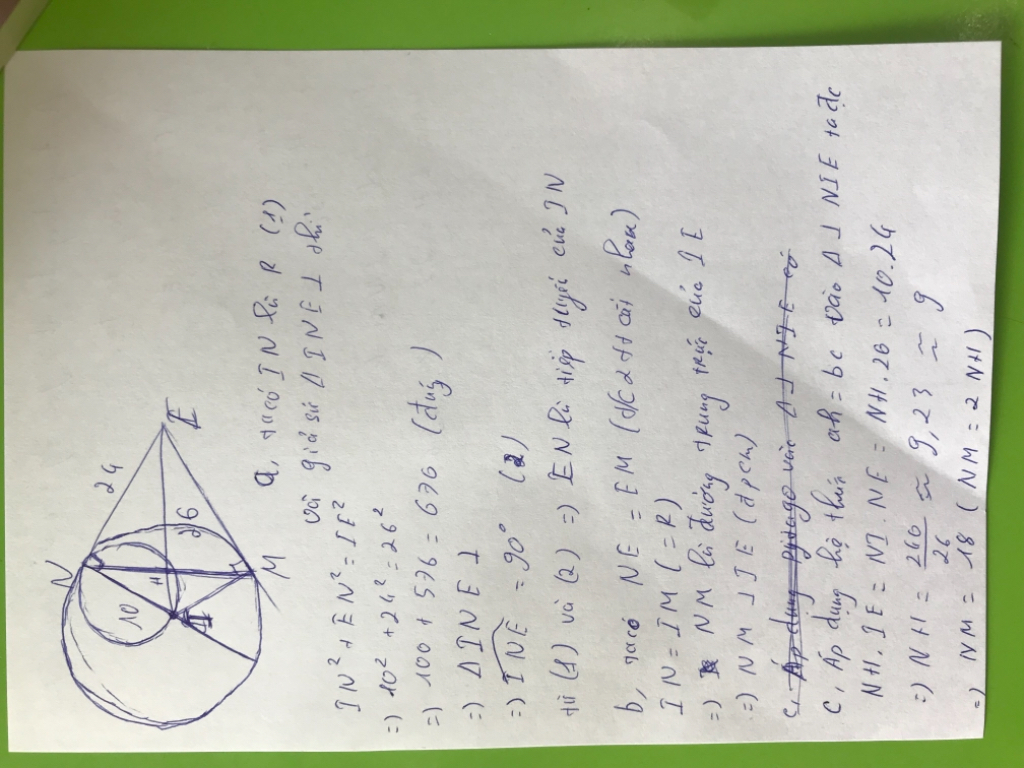 N
24
E
26
10
H
I
M
a, ta có IN là R (1)
và giả sử Δ INE ⊥ thì
IN² + EN² = IE²
=) 10² + 24² = 26²
=) 100 + 576 = 676 (đúng)
=) Δ INE ⊥
=) INE = 90° (2)
từ (1) và (2) =) EN là tiếp tuyến của IN
b, ta có NE = EM (t/c 2 tt cắt nhau)
IN = IM (= R)
=) NM là đường trung trực của IE
=) NM ⊥ IE (đpcm)
c, Áp dụng pytago vào Δ ⊥ NIE có
c, Áp dụng hệ thức ah = bc vào Δ ⊥ NIE ta đc
NH. IE = NI. NE = NH. 26 = 10. 24
=) NH = 240/26 ≈ 9,23 ≈ 9
=) NM = 18 ( NM = 2 NH)